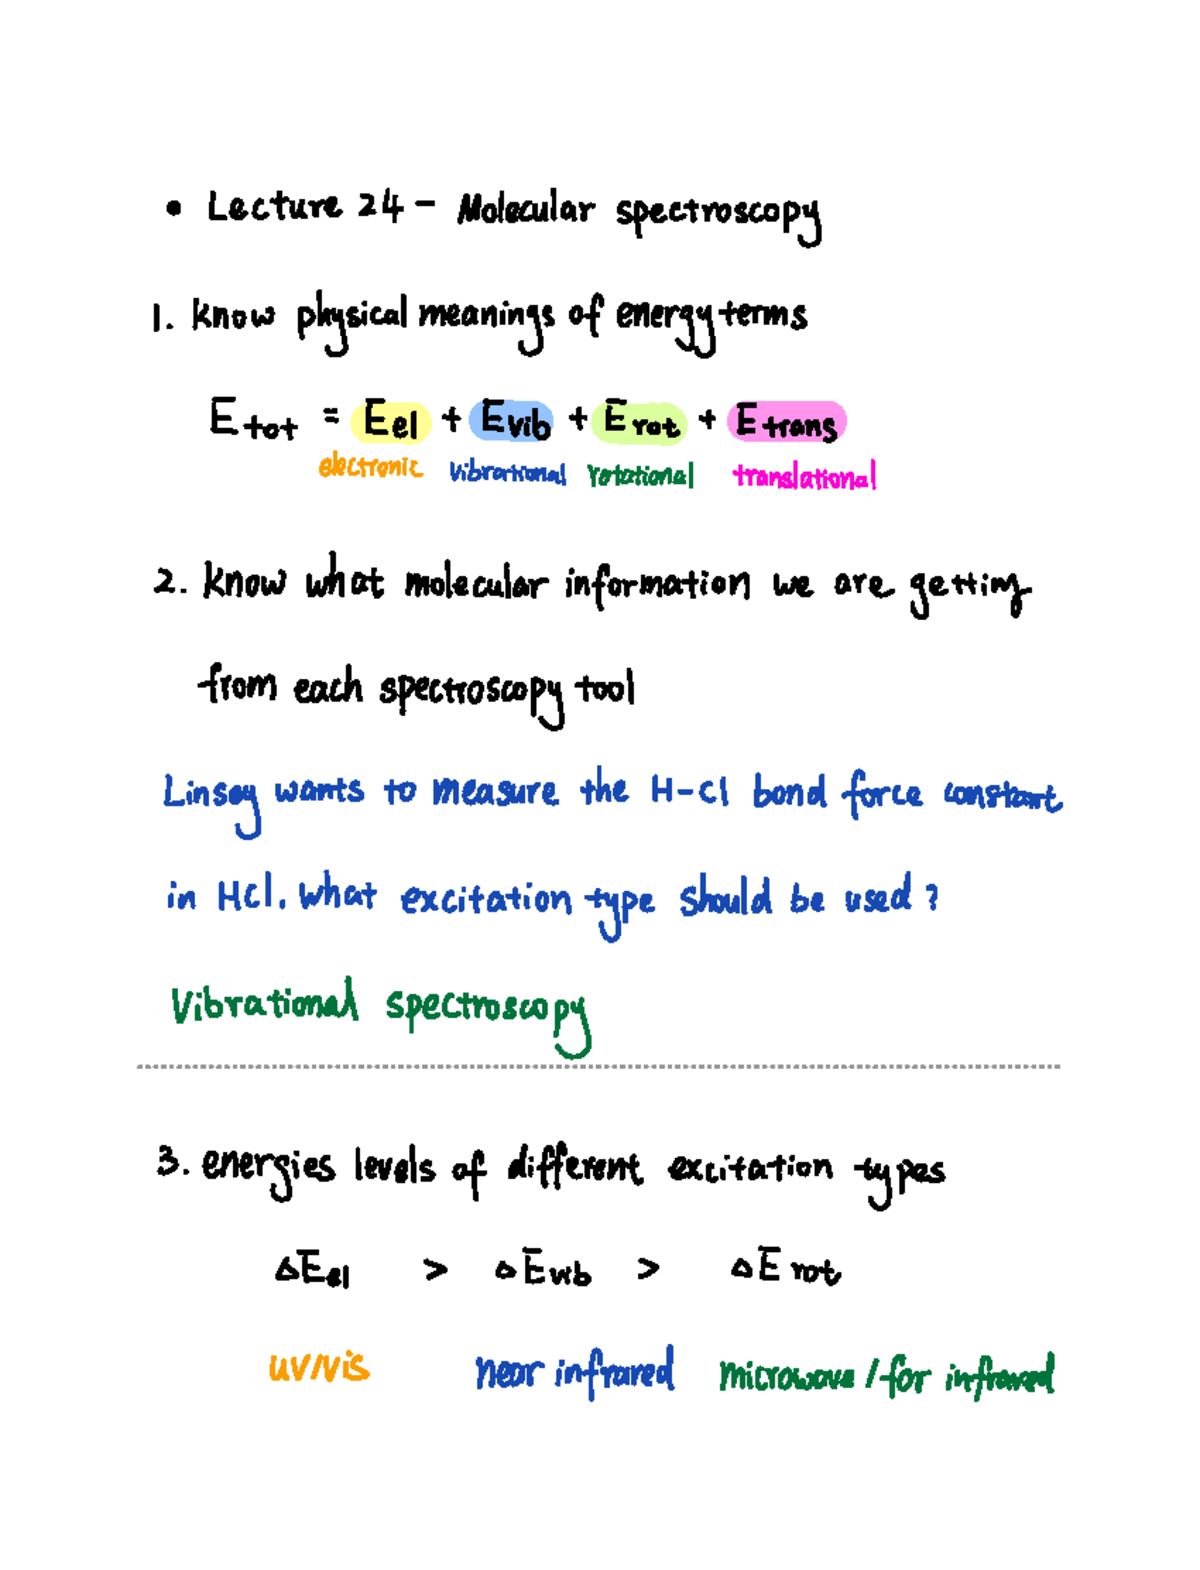 • Lecture 24 - Molecular spectroscopy
1. know physical meanings of energy terms
Etot = Eel + Evib + Erot + Etrans
electronic vibrational rotational translational
2. know what molecular information we are getting
from each spectroscopy tool
Linsey wants to measure the H-Cl bond force constant
in HCl. What excitation type should be used?
Vibrational spectroscopy
3. energies levels of different excitation types
ΔEel > ΔEvib > ΔErot
UV/Vis near infrared microwave / far infrared